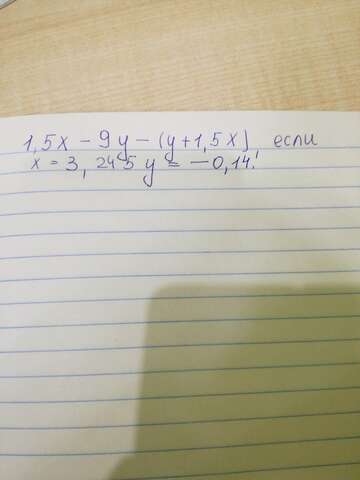 1,5x - 9y - (y + 1,5x), если
x = 3,245 y = -0,14!